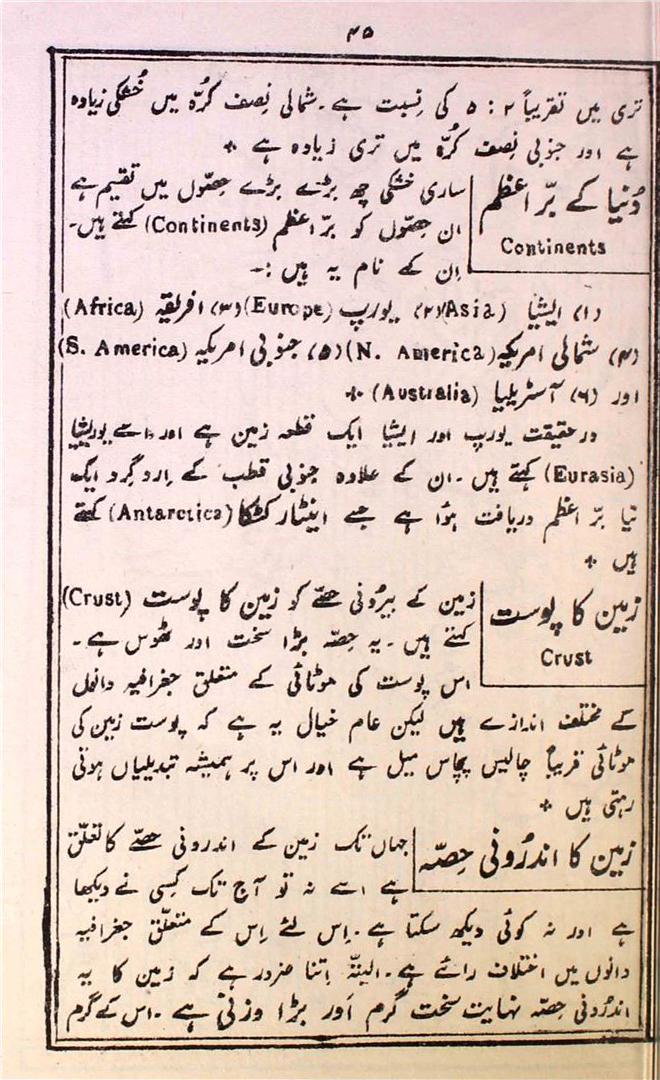 ۴۵
تری میں تقریباً ۲ : ۵ کی نِسبت ہے۔ شمالی نِصف کُرّہ میں خُشکی زیادہ
ہے اور جنوبی نِصف کُرّہ میں تری زیادہ ہے +
دُنیا کے برِّ اعظم
Continents
ساری خشکی چھ بڑے بڑے حِصّوں میں تقسیم ہے
ان حِصّوں کو برِّ اعظم (Continents) کہتے ہیں۔
اِن کے نام یہ ہیں :-
(۱) ایشیا (Asia) (۲) یورپ (Europe) (۳) افریقہ (Africa)
(۴) شمالی امریکہ (N. America) (۵) جنوبی امریکہ (S. America)
اور (۶) آسٹریلیا (Australia) +
درحقیقت یورپ اور ایشیا ایک قطعہ زمین ہے اور اسے یوریشیا
(Eurasia) کہتے ہیں۔ ان کے علاوہ جنوبی قطب کے اردگرد ایک
نیا برِّ اعظم دریافت ہوُا ہے جسے اینٹارکٹکا (Antarctica) کہتے
ہیں +
زمین کا پوست
Crust
زمین کے بیرُونی حصّے کو زمین کا پوست (Crust)
کہتے ہیں۔ یہ حِصّہ بڑا سخت اور ٹھوس ہے۔
اس پوست کی موٹائی کے متعلق جغرافیہ دانوں
کے مختلف اندازے ہیں لیکن عام خیال یہ ہے کہ پوست زمین کی
موٹائی قریباً چالیس پچاس میل ہے اور اس پر ہمیشہ تبدیلیاں ہوتی
رہتی ہیں +
زمین کا اندرُونی حِصّہ
جہاں تک زمین کے اندرونی حصّے کا تعلّق
ہے اسے نہ تو آج تک کِسی نے دیکھا
ہے اور نہ کوئی دیکھ سکتا ہے۔ اِس لئے اِس کے متعلّق جغرافیہ
دانوں میں اختلاف رائے ہے۔ البتّہ اِتنا ضرور ہے کہ زمین کا یہ
اندرُونی حِصّہ نہایت سخت گرم اَور بڑا وزنی ہے۔ اس کے گرم